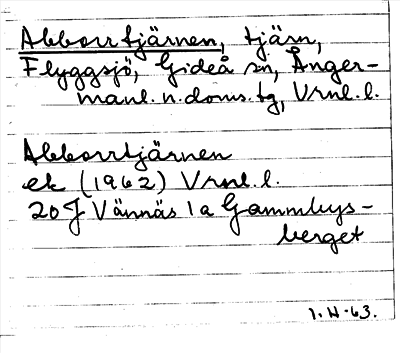 Abborrtjärnen, tjärn,
Flyggsjö, Gideå sn, Ånger-
manl. n. doms. tg, Vrnl. l.
Abborrtjärnen
ek (1962) Vrnl. l.
20 J Vännäs 1a Gammbys-
berget